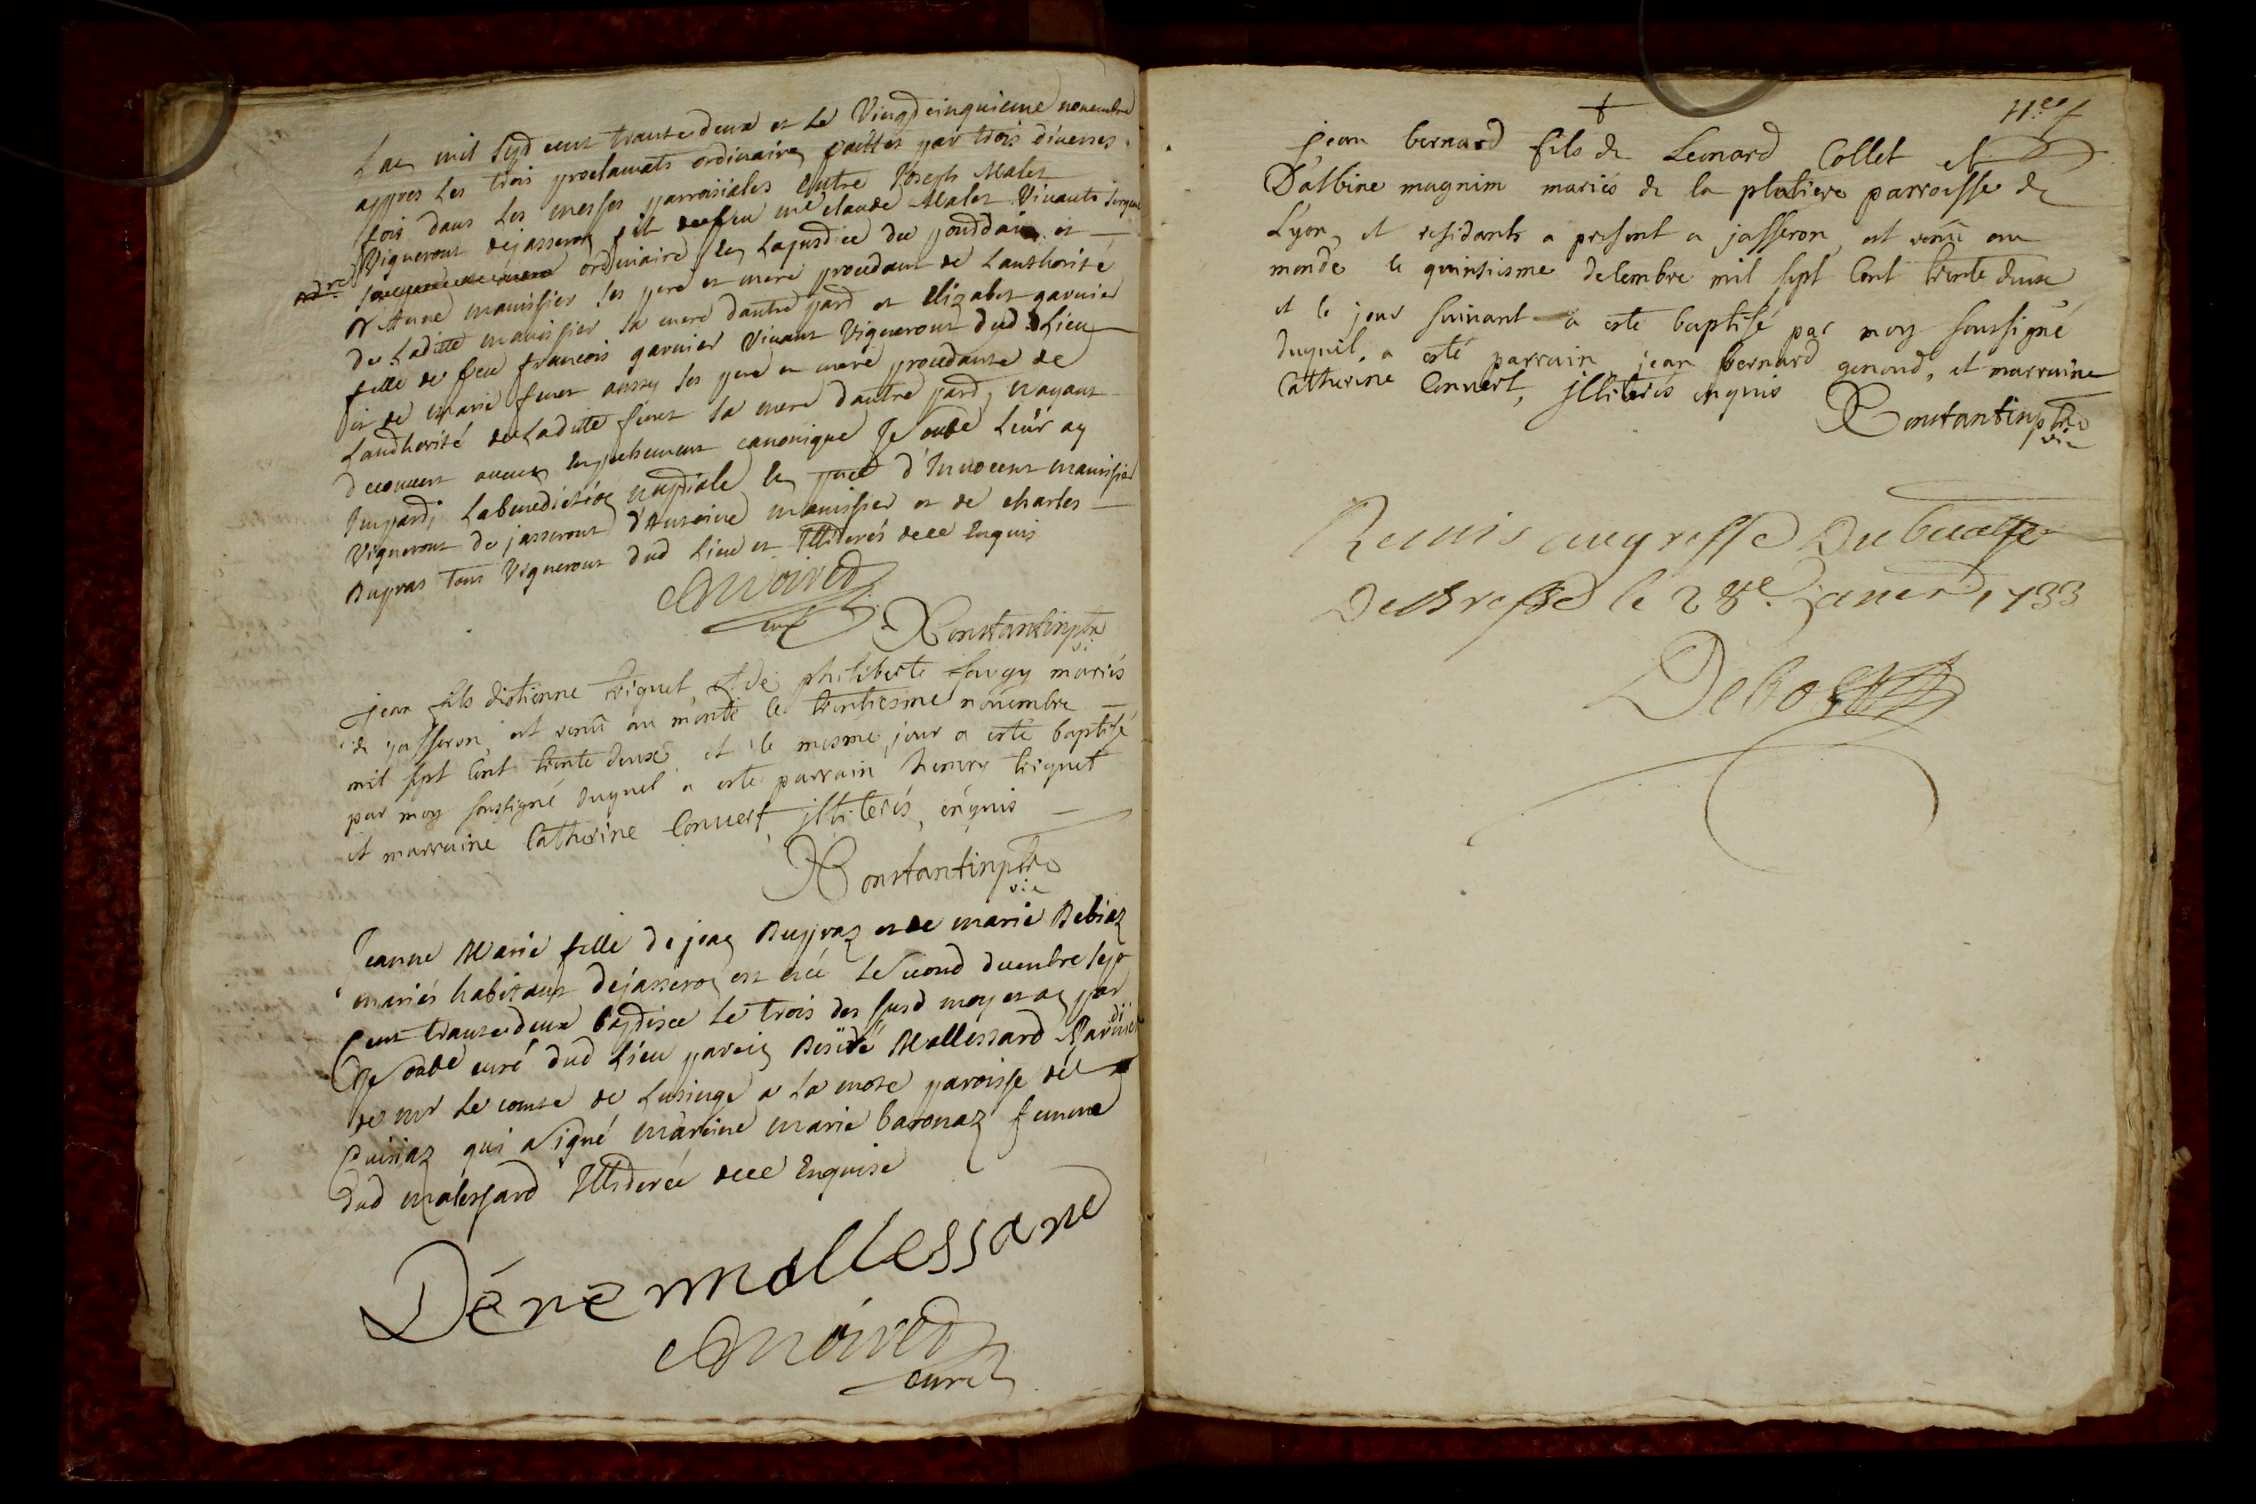 Lan mil sept cent trante deux et le vingt cinquieme novembre
appres les trois proclamats ordinaires faittes par trois diverses
fois dans les messes parroisiales entre Joseph Malet
vigneront de jasseron fil de feu me claude Malet vivant sergent
ordinaire de la justice du et
d'Anne manissier ses pere et mere procedant de lauthorité
de Ladite manissier sa mere dautre part et Elizabet garnier
fille de feu francois garnier vivant vigneront dud Lieu
et de marie furet aussy ses pere et mere procedante de
Lauthorité de Ladite furet sa mere dautre part, nayant
decouvert aucun empechement canonique Je curé Leur ay
Imparti la benediction nuptiale en pnce d'Innocent manissier
vigneront de jasseront d'Antoine manissier et de charles
Dupras tous vigneront dud Lieu et Illiterés de ce Enquis
curé
Constantin ptre
vi
jean fils d'estienne triquet et de philiberte fougy mariés
de jasseron, est venû au monde le trentiesme novembre
mil sept cent trente deux, et le mesme jour a esté baptisé
par moy soussigné duquel a este parrain henry triquet
et marraine Catherine Convert, illiterés, enquis
Constantin ptre
vic
Jeanne Marie fille de jean Dupraz et de marie Debiaz
mariés habitant de jasseron est née le second decembre sept
cent trante deux baptisee le trois des susd moy et an par
Je curé dud Lieu parein Desiré Mallessard
de mr Le comte de Lusinge a La mote paroisse de
Cuisiaz qui a signé mareine marie baronaz femme
dud malessard Illiderée de ce Enquise
Déré mallessard
curé
jean bernard fils de Leonard Collet et
D'albine magnin mariés de la platiere parroisse de
Lyon, et residants a present a jasseron, est venû au
monde le quinsiesme decembre mil sept cent trente deux
et le jour suivant a esté baptisé par moy soussigné
duquel a esté parrain jean bernard genoud, et marraine
Catherine Convert, illiterés enquis
Constantin ptre
vic
Remis au greffe Du bailliage
De Bresse le 28e. janvier 1733
Debost